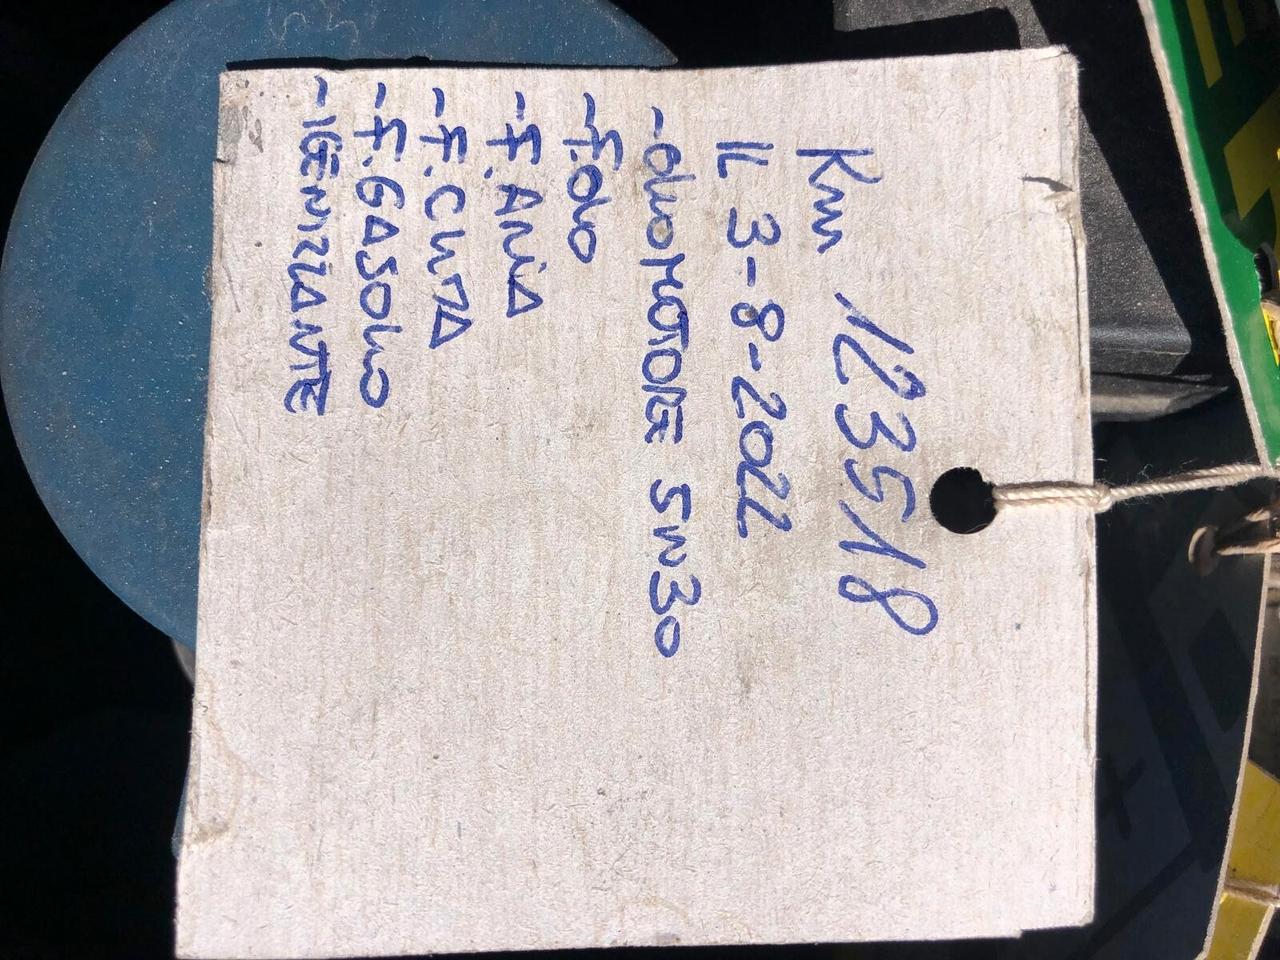 Km 123518
IL 3-8-2022
- olio MOTORE 5W30
- F. olio
- F. ARIA
- F. CliMA
- F. GASOLIO
- IGENIZZANTE